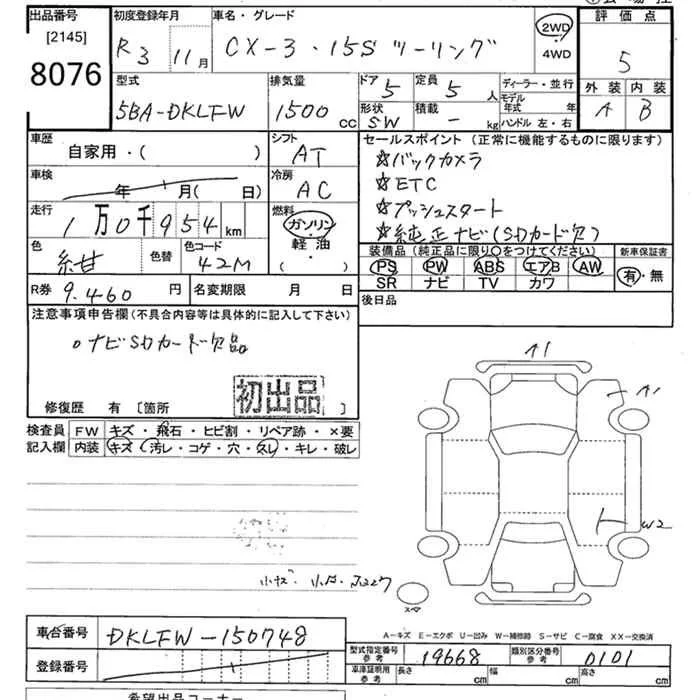 出品番号
[2145]
8076
初度登録年月
R3 11月
車名・グレード
CX-3・15S ツーリング
2WD
4WD
評価点
5
外装 内装
A B
型式
5BA-DKLFW
排気量
1500 cc
ドア 5
形状 SW
定員 5 人
積載 - kg
ディーラー・並行
モデル年式 年
ハンドル 左・右
車歴
自家用・( )
シフト
AT
セールスポイント(正常に機能するものに限ります)
☆バックカメラ
☆ETC
☆プッシュスタート
☆純正ナビ(SDカード欠)
車検
年 月( 日)
冷房
AC
走行
1万0千954 km
燃料
ガソリン
軽油
( ・ )
色
紺
色替
色コード
42M
装備品(純正品に限り○をつけてください)
PS PW ABS エアB AW
SR ナビ TV カワ
新車保証書
有・無
R券 9.460 円
名変期限 月 日
後日品
注意事項申告欄(不具合内容等は具体的に記入して下さい)
○ナビSDカード欠品
初出品
修復歴 有 [箇所 ]
検査員記入欄
FW キズ・飛石・ヒビ割・リペア跡・×要
内装 キズ・汚レ・コゲ・穴・スレ・キレ・破レ
A1
A1
W2
スペア
A-キズ E-エクボ U-凹み W-補修跡 S-サビ C-腐食 XX-交換済
車台番号 DKLFW-150748
登録番号
型式指定番号 参考 19668
類別区分番号 参考 0101
車庫証明用 参考 長さ cm 幅 cm 高さ cm
希望出品コーナー